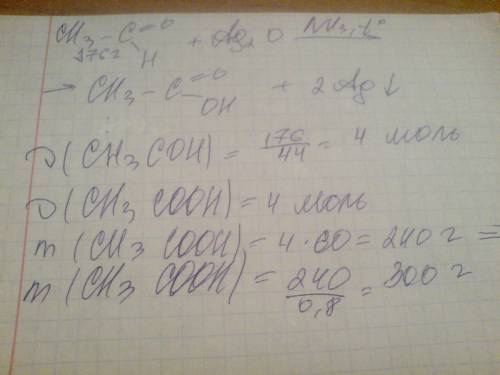 CH₃ – C =O H + Ag₂O NH₃, t°
176 г
→ CH₃ – C =O OH + 2 Ag ↓
ν (CH₃ COH) = 176/44 = 4 моль
ν (CH₃ COOH) = 4 моль
m (CH₃ COOH) = 4 · 60 = 240 г =
m (CH₃ COOH) = 240/0,8 = 300 г